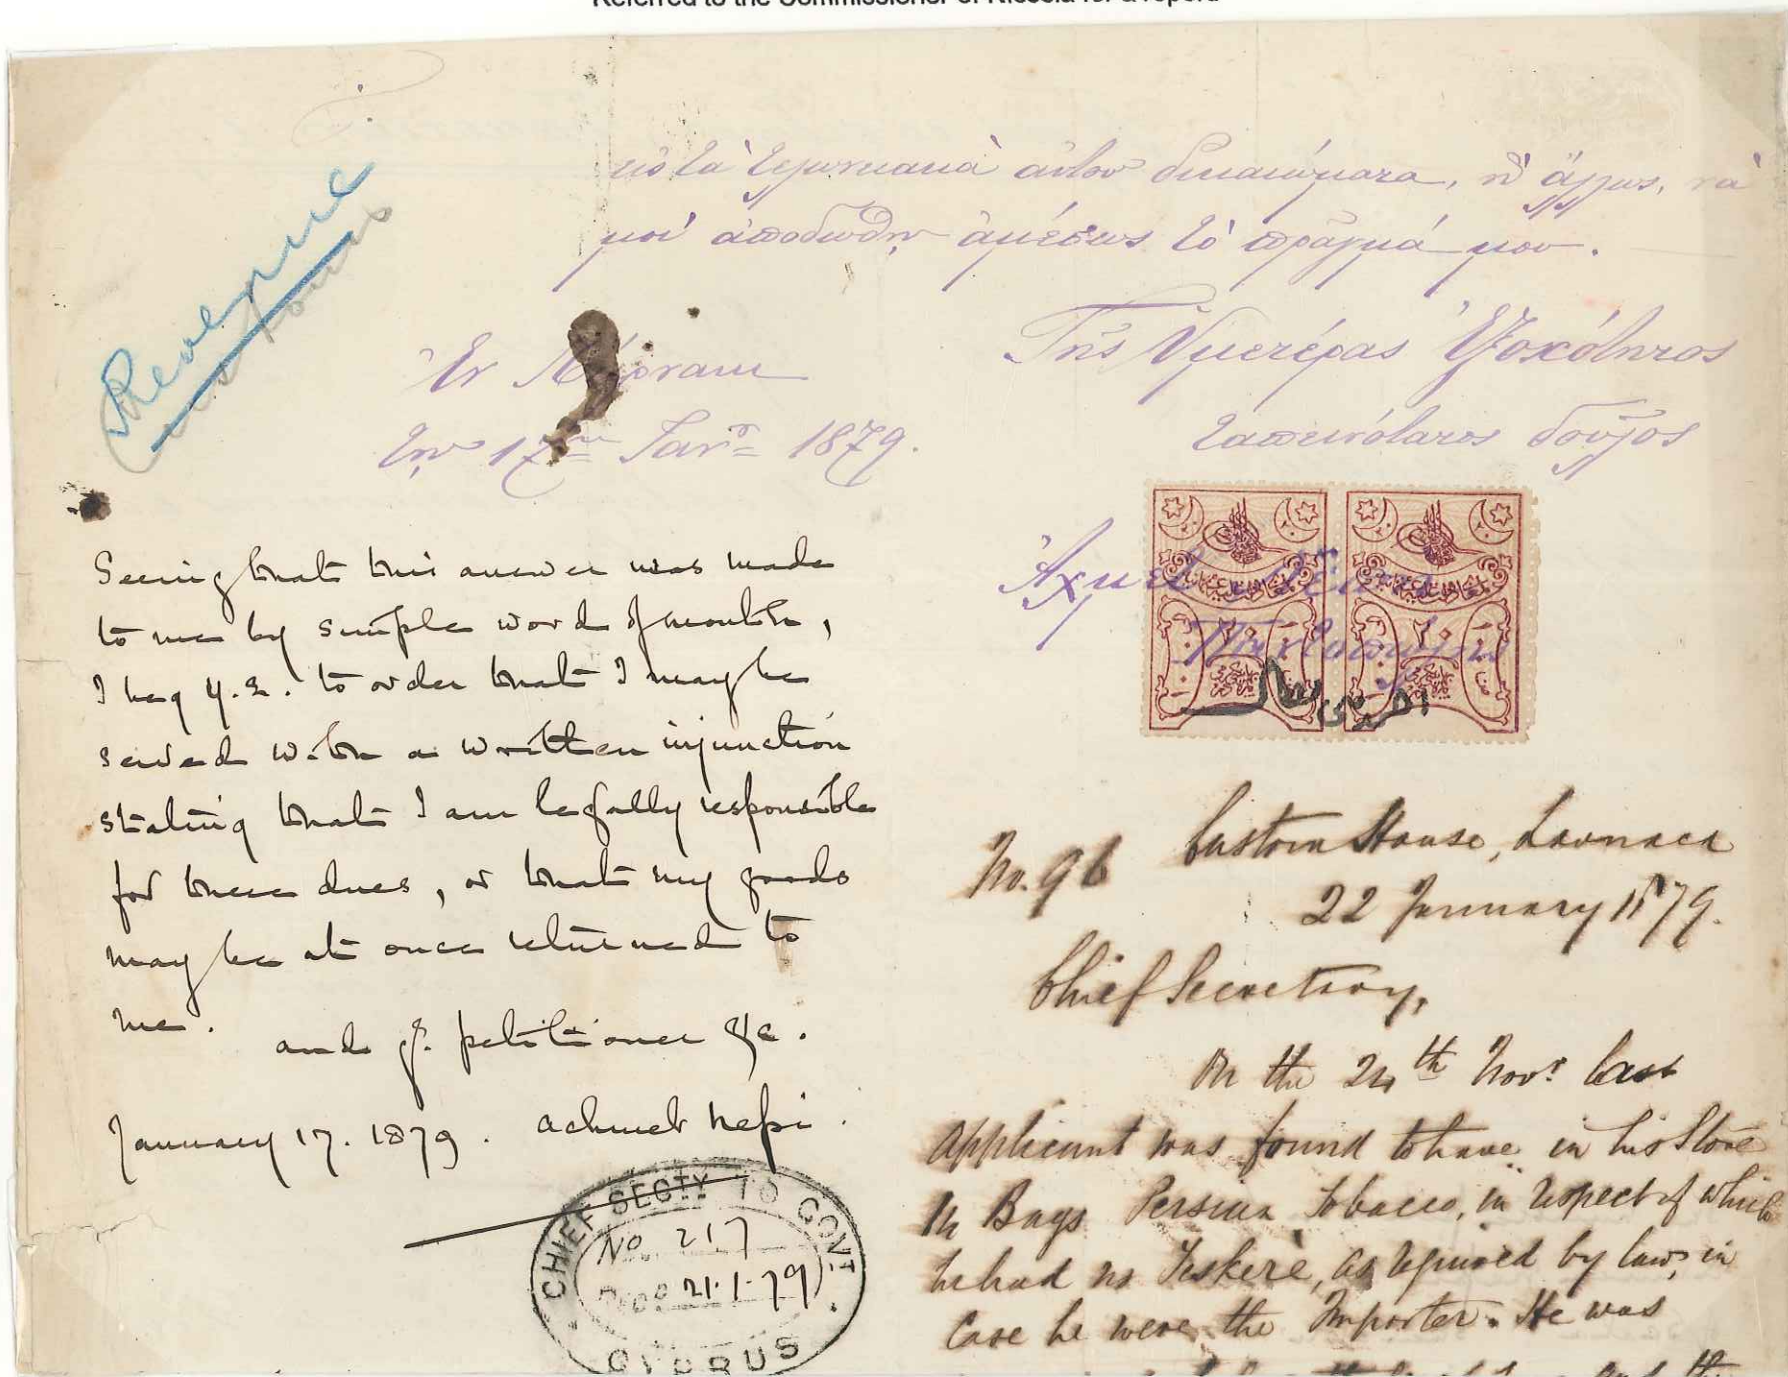 Referred to the Commissioner of Nicosia for a report
Revenue
Customs
εἰς τὰ τελωνειακὰ αὐτοῦ δικαιώματα, ἢ ἄλλως, νὰ
μοὶ ἀποδωθῇ ἀμέσως τὸ πρᾶγμά μου.
Τῆς Ὑμετέρας Ἐξοχότητος
ταπεινότατος δοῦλος
Ἐν Λάρνακι
τῇ 17ῃ Ἰανρ. 1879.
Ἀχμὲτ
Seeing that this answer was made
to me by simple word of mouth,
I beg Y.E. to order that I may be
served with a written injunction
stating that I am legally responsible
for these dues, or that my goods
may be at once returned to
me.
and yr. petitioner &c.
January 17. 1879. achmet nefsi.
CHIEF SECTY TO GOVT
No 217
21.1.79
CYPRUS
No. 96
Custom House, Larnaca
22 January 1879.
Chief Secretary,
On the 24th Novr. last
applicant was found to have in his Store
14 Bags Persian Tobacco, in respect of which
he had no Teskerè, as required by law, in
case he were the Importer. He was